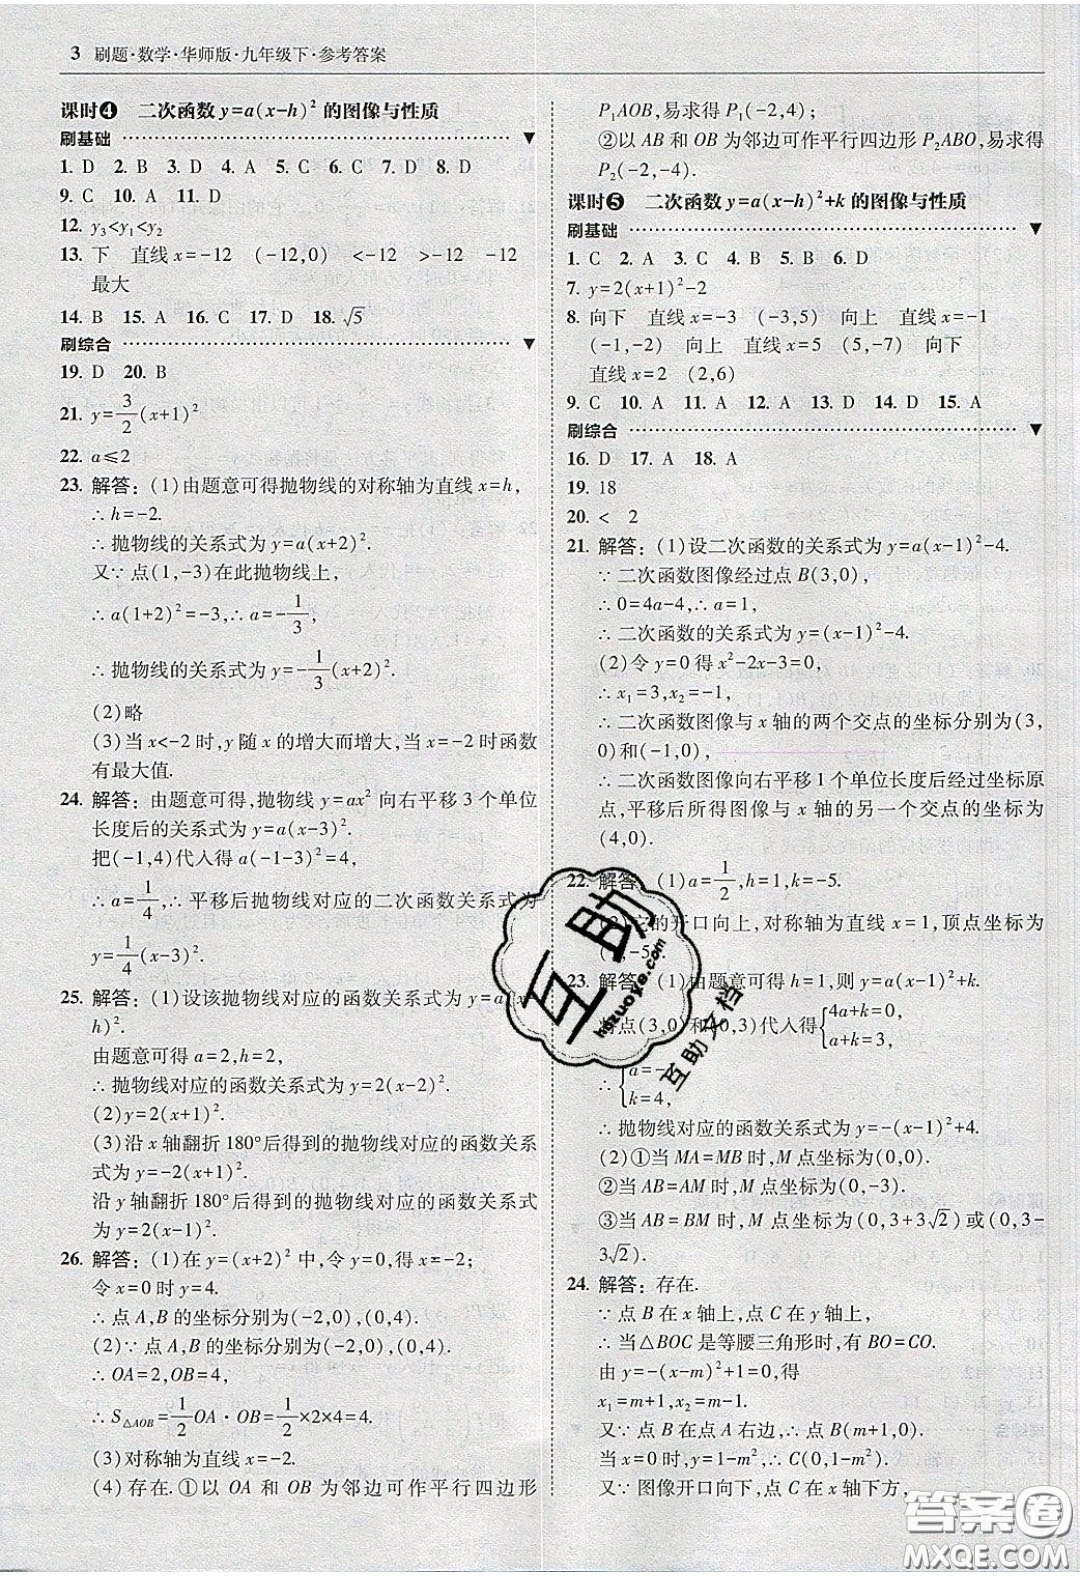 3 刷题·数学·华师版·九年级下·参考答案
课时❹ 二次函数y=a(x-h)²的图像与性质
刷基础
1. D 2. B 3. D 4. A 5. C 6. C 7. D 8. D
9. C 10. A 11. D
12. y₃<y₁<y₂
13. 下 直线x=-12 (-12,0) <-12 >-12 -12
最大
14. B 15. A 16. C 17. D 18. √5
刷综合
19. D 20. B
21. y=3/2(x+1)²
22. a≤2
23. 解答:(1)由题意可得抛物线的对称轴为直线x=h,
∴h=-2.
∴抛物线的关系式为y=a(x+2)².
又∵点(1,-3)在此抛物线上,
∴a(1+2)²=-3,∴a=-1/3,
∴抛物线的关系式为y=-1/3(x+2)².
(2)略
(3)当x<-2时,y随x的增大而增大,当x=-2时函数
有最大值.
24. 解答:由题意可得,抛物线y=ax²向右平移3个单位
长度后的关系式为y=a(x-3)².
把(-1,4)代入得a(-1-3)²=4,
∴a=1/4,∴平移后抛物线对应的二次函数关系式为
y=1/4(x-3)².
25. 解答:(1)设该抛物线对应的函数关系式为y=a(x-
h)².
由题意可得a=2,h=2,
∴抛物线对应的函数关系式为y=2(x-2)².
(2)y=2(x+1)².
(3)沿x轴翻折180°后得到的抛物线对应的函数关系
式为y=-2(x+1)².
沿y轴翻折180°后得到的抛物线对应的函数关系式
为y=2(x-1)².
26. 解答:(1)在y=(x+2)²中,令y=0,得x=-2;
令x=0时y=4.
∴点A,B的坐标分别为(-2,0),(0,4).
(2)∵点A,B的坐标分别为(-2,0),(0,4),
∴OA=2,OB=4,
∴S△AOB=1/2OA·OB=1/2×2×4=4.
(3)对称轴为直线x=-2.
(4)存在.①以OA和OB为邻边可作平行四边形
P₁AOB,易求得P₁(-2,4);
②以AB和OB为邻边可作平行四边形P₂ABO,易求得
P₂(-2,-4).
课时❺ 二次函数y=a(x-h)²+k的图像与性质
刷基础
1. C 2. A 3. C 4. B 5. B 6. D
7. y=2(x+1)²-2
8. 向下 直线x=-3 (-3,5) 向上 直线x=-1
(-1,-2) 向上 直线x=5 (5,-7) 向下
直线x=2 (2,6)
9. C 10. A 11. A 12. A 13. D 14. D 15. A
刷综合
16. D 17. A 18. A
19. 18
20. < 2
21. 解答:(1)设二次函数的关系式为y=a(x-1)²-4.
∵二次函数图像经过点B(3,0),
∴0=4a-4,∴a=1,
∴二次函数的关系式为y=(x-1)²-4.
(2)令y=0得x²-2x-3=0,
∴x₁=3,x₂=-1,
∴二次函数图像与x轴的两个交点的坐标分别为(3,
0)和(-1,0),
∴二次函数图像向右平移1个单位长度后经过坐标原
点,平移后所得图像与x轴的另一个交点的坐标为
(4,0).
22. 解答:(1)a=1/2,h=1,k=-5.
(2)它的开口向上,对称轴为直线x=1,顶点坐标为
,-5).
23. 解答:(1)由题意可得h=1,则y=a(x-1)²+k.
将点(3,0)和(0,3)代入得{4a+k=0, a+k=3,
∴{a=- k=4,
∴抛物线对应的函数关系式为y=-(x-1)²+4.
(2)①当MA=MB时,M点坐标为(0,0).
②当AB=AM时,M点坐标为(0,-3).
③当AB=BM时,M点坐标为(0,3+3√2)或(0,3-
3√2).
24. 解答:存在.
∵点B在x轴上,点C在y轴上,
∴当△BOC是等腰三角形时,有BO=CO.
由y=-(x-m)²+1=0,得
x₁=m+1,x₂=m-1.
又∵点B在点A右边,∴点B(m+1,0).
当x=0时,y=1-m²,∴点C(0,1-m²).
又∵图像开口向下,且点C在x轴下方,
互助
hgzuoye.com
互助文档
答案圈
MXQE.COM